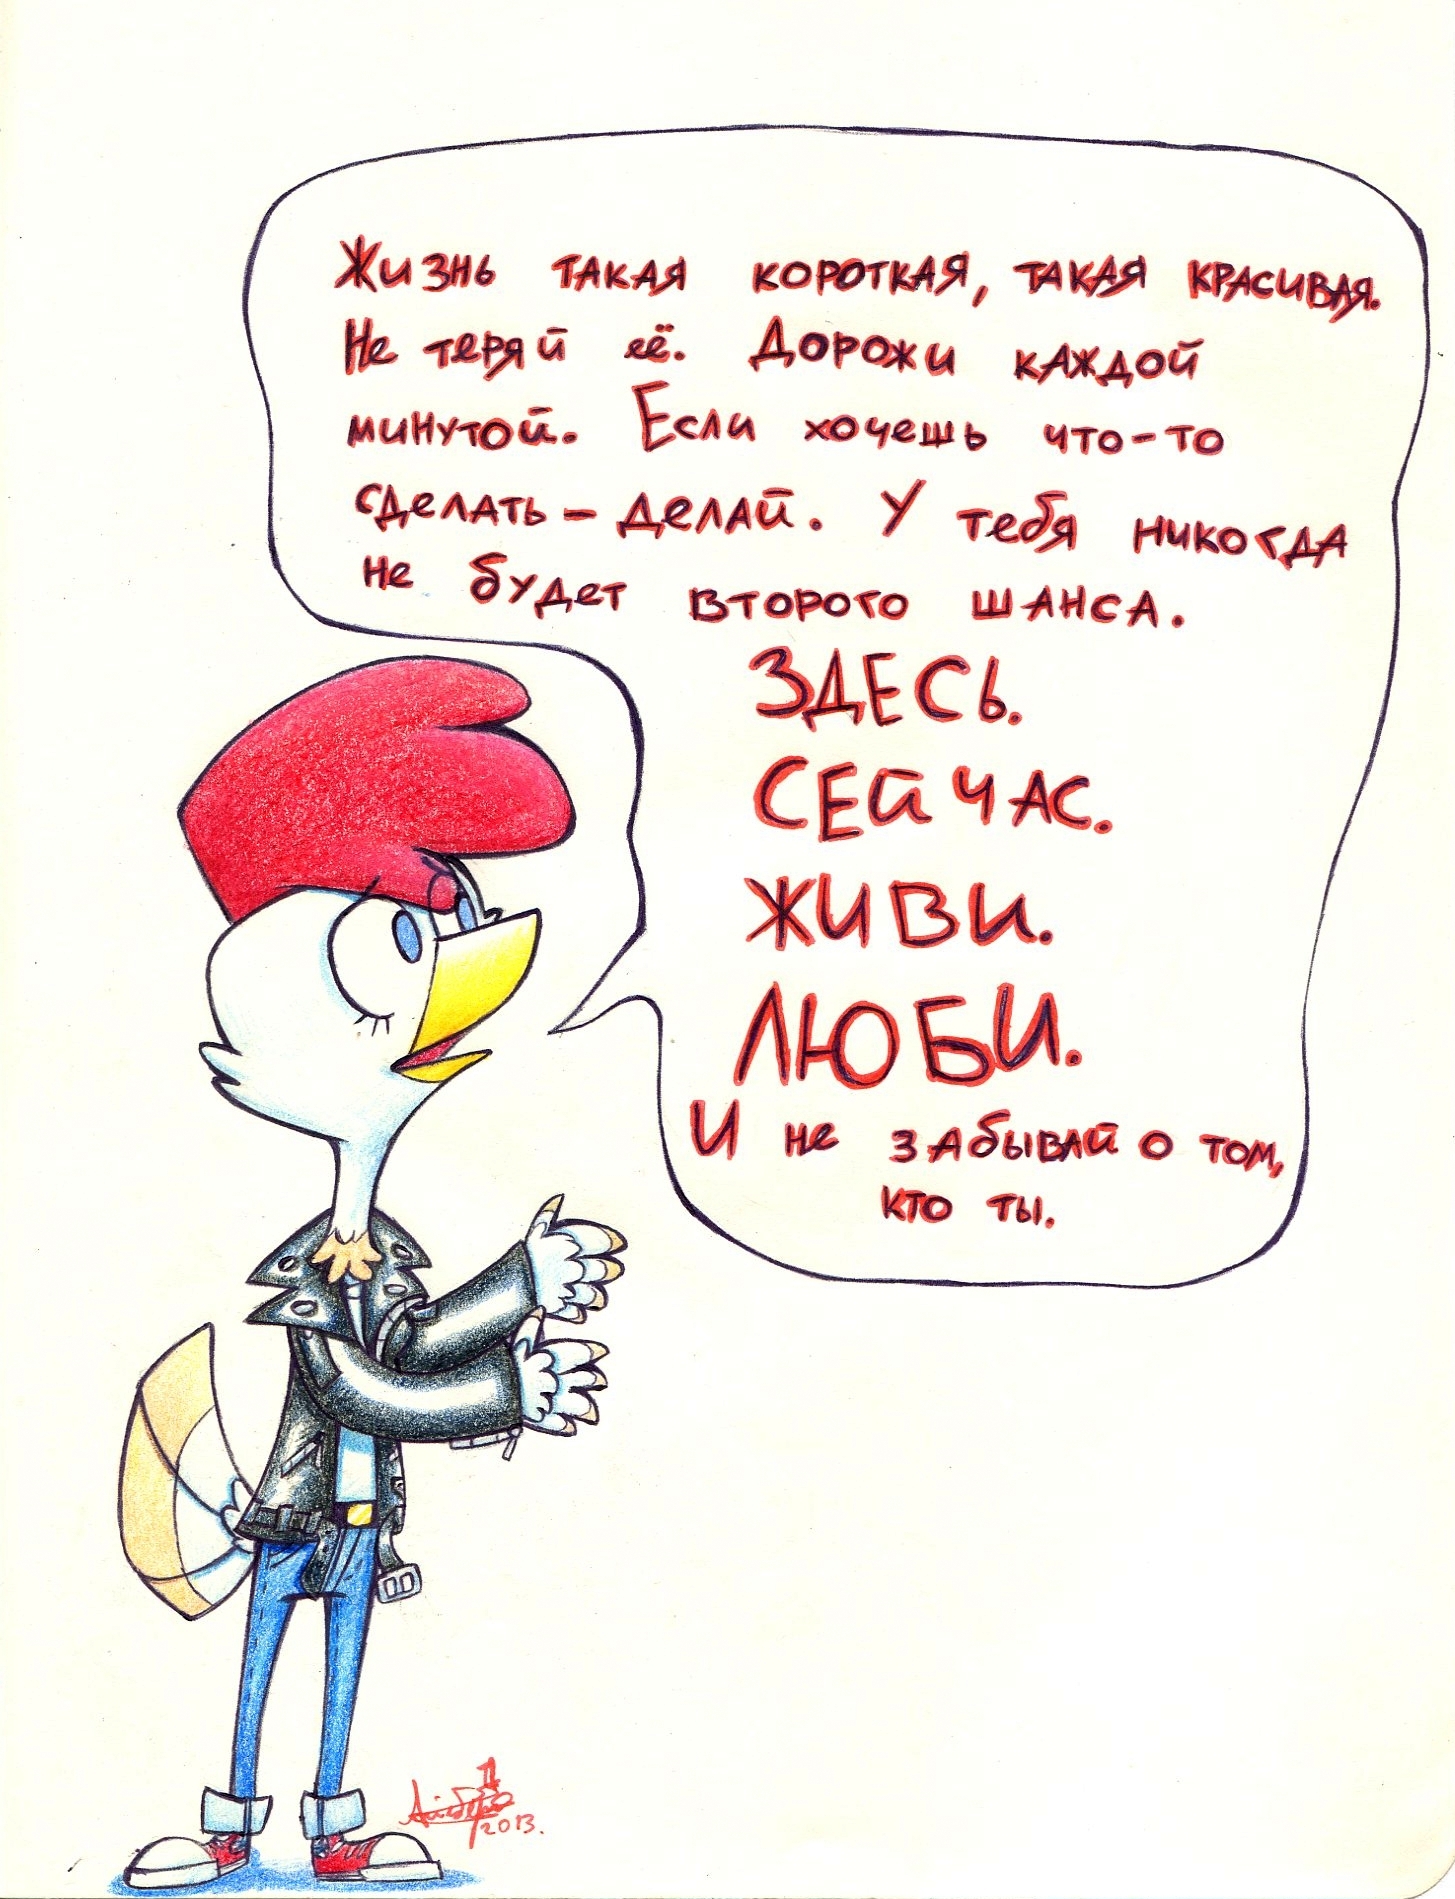 Жизнь такая короткая, такая красивая.
Не теряй её. Дорожи каждой
минутой. Если хочешь что-то
сделать – делай. У тебя никогда
не будет второго шанса.
ЗДЕСЬ.
СЕЙЧАС.
ЖИВИ.
ЛЮБИ.
И не забывай о том,
кто ты.
2013.